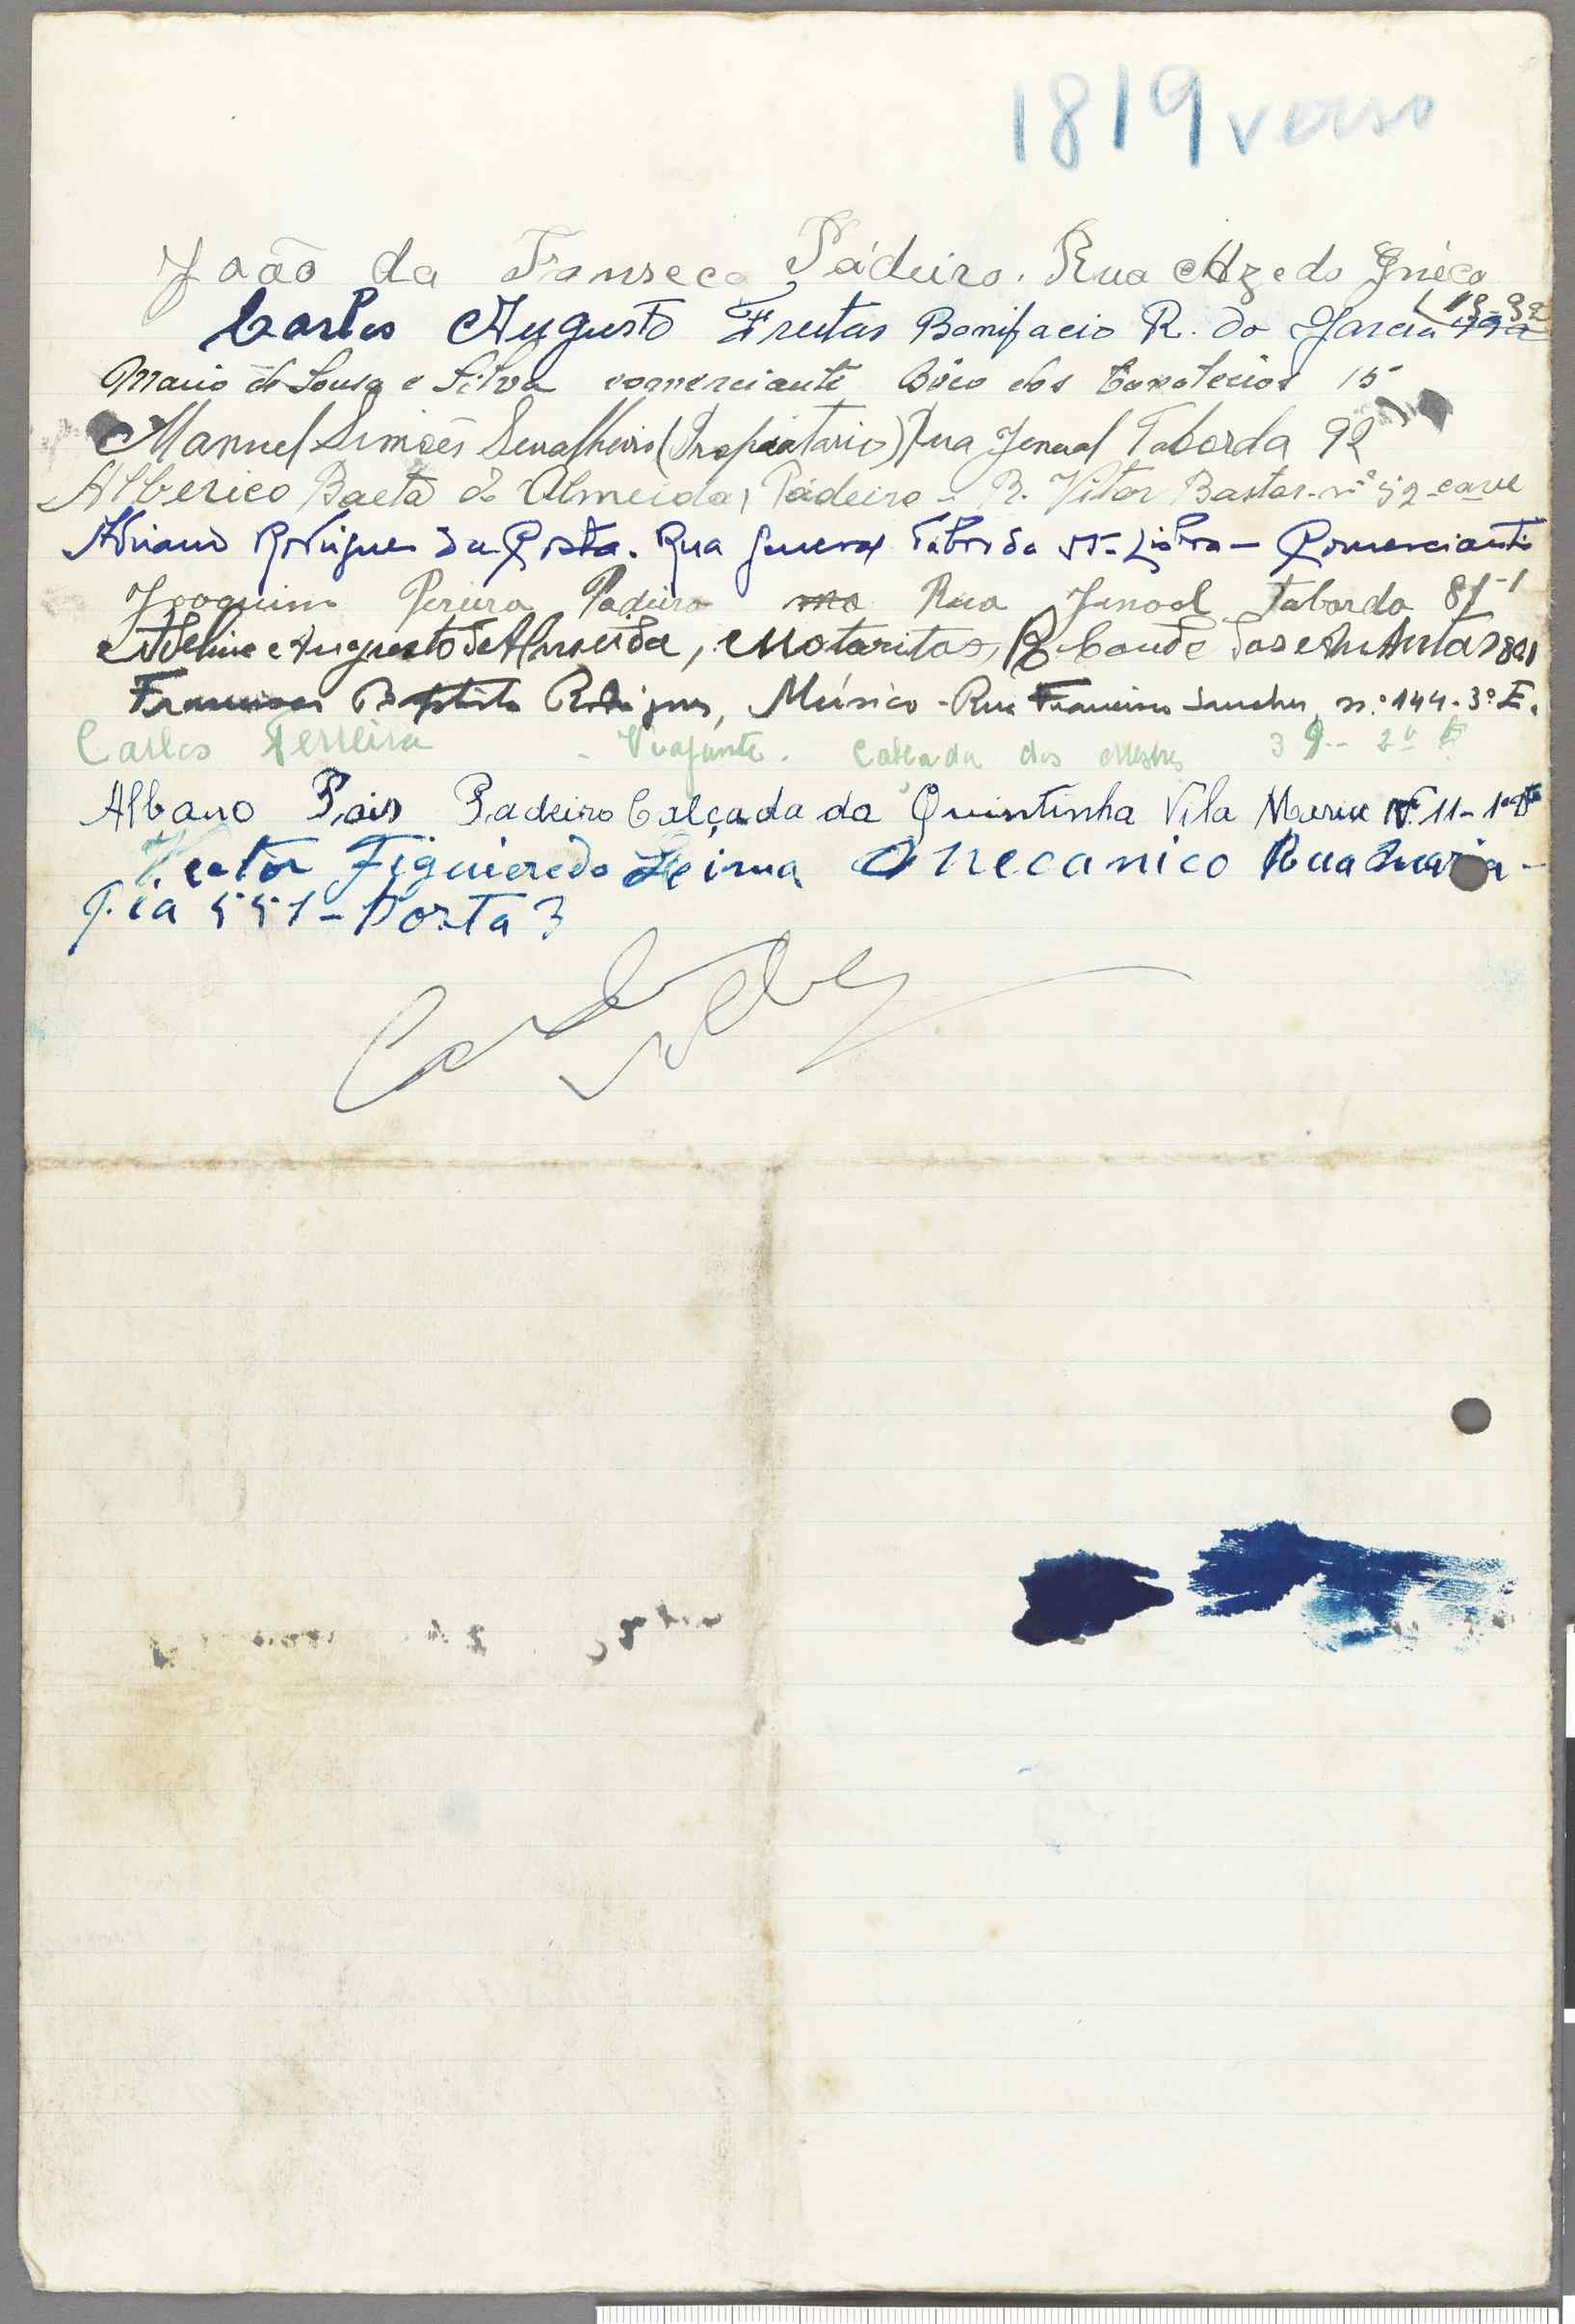 1819 verso
João da Fonseca Pádeiro. Rua Azedo Gneco
19-32
Carlos Augusto Freitas Bonifacio R. do Garcia
Mario de Sousa e Silva comerciante Bêco dos 15
Manuel Simões Serralheiro (Propietario) Rua General Taborda 92
Alberico Baeta d'Almeida, Pádeiro - R. Vitor Bastos - nº 52 - cave
Adriano Rodrigues da Costa. Rua General Taborda 55 - Lisboa - Comerciante
Joaquim Pereira Padeiro Rua Jenoal Taborda 81-1
Adelino Augusto de Almeida, Motorista, R. Conde das Antas
Francisco Baptista Rodrigues, Músico - Rua Francisco Sanches, n.º 144-3º E.
Carlos Ferreira - Viajante. Calçada dos Mestres 39-2º E
Albano Pais Padeiro Calçada da Quintinha Vila Maria Nº 11-1º
Figueiredo Mecanico Rua Maria
Pia 551-Porta 3